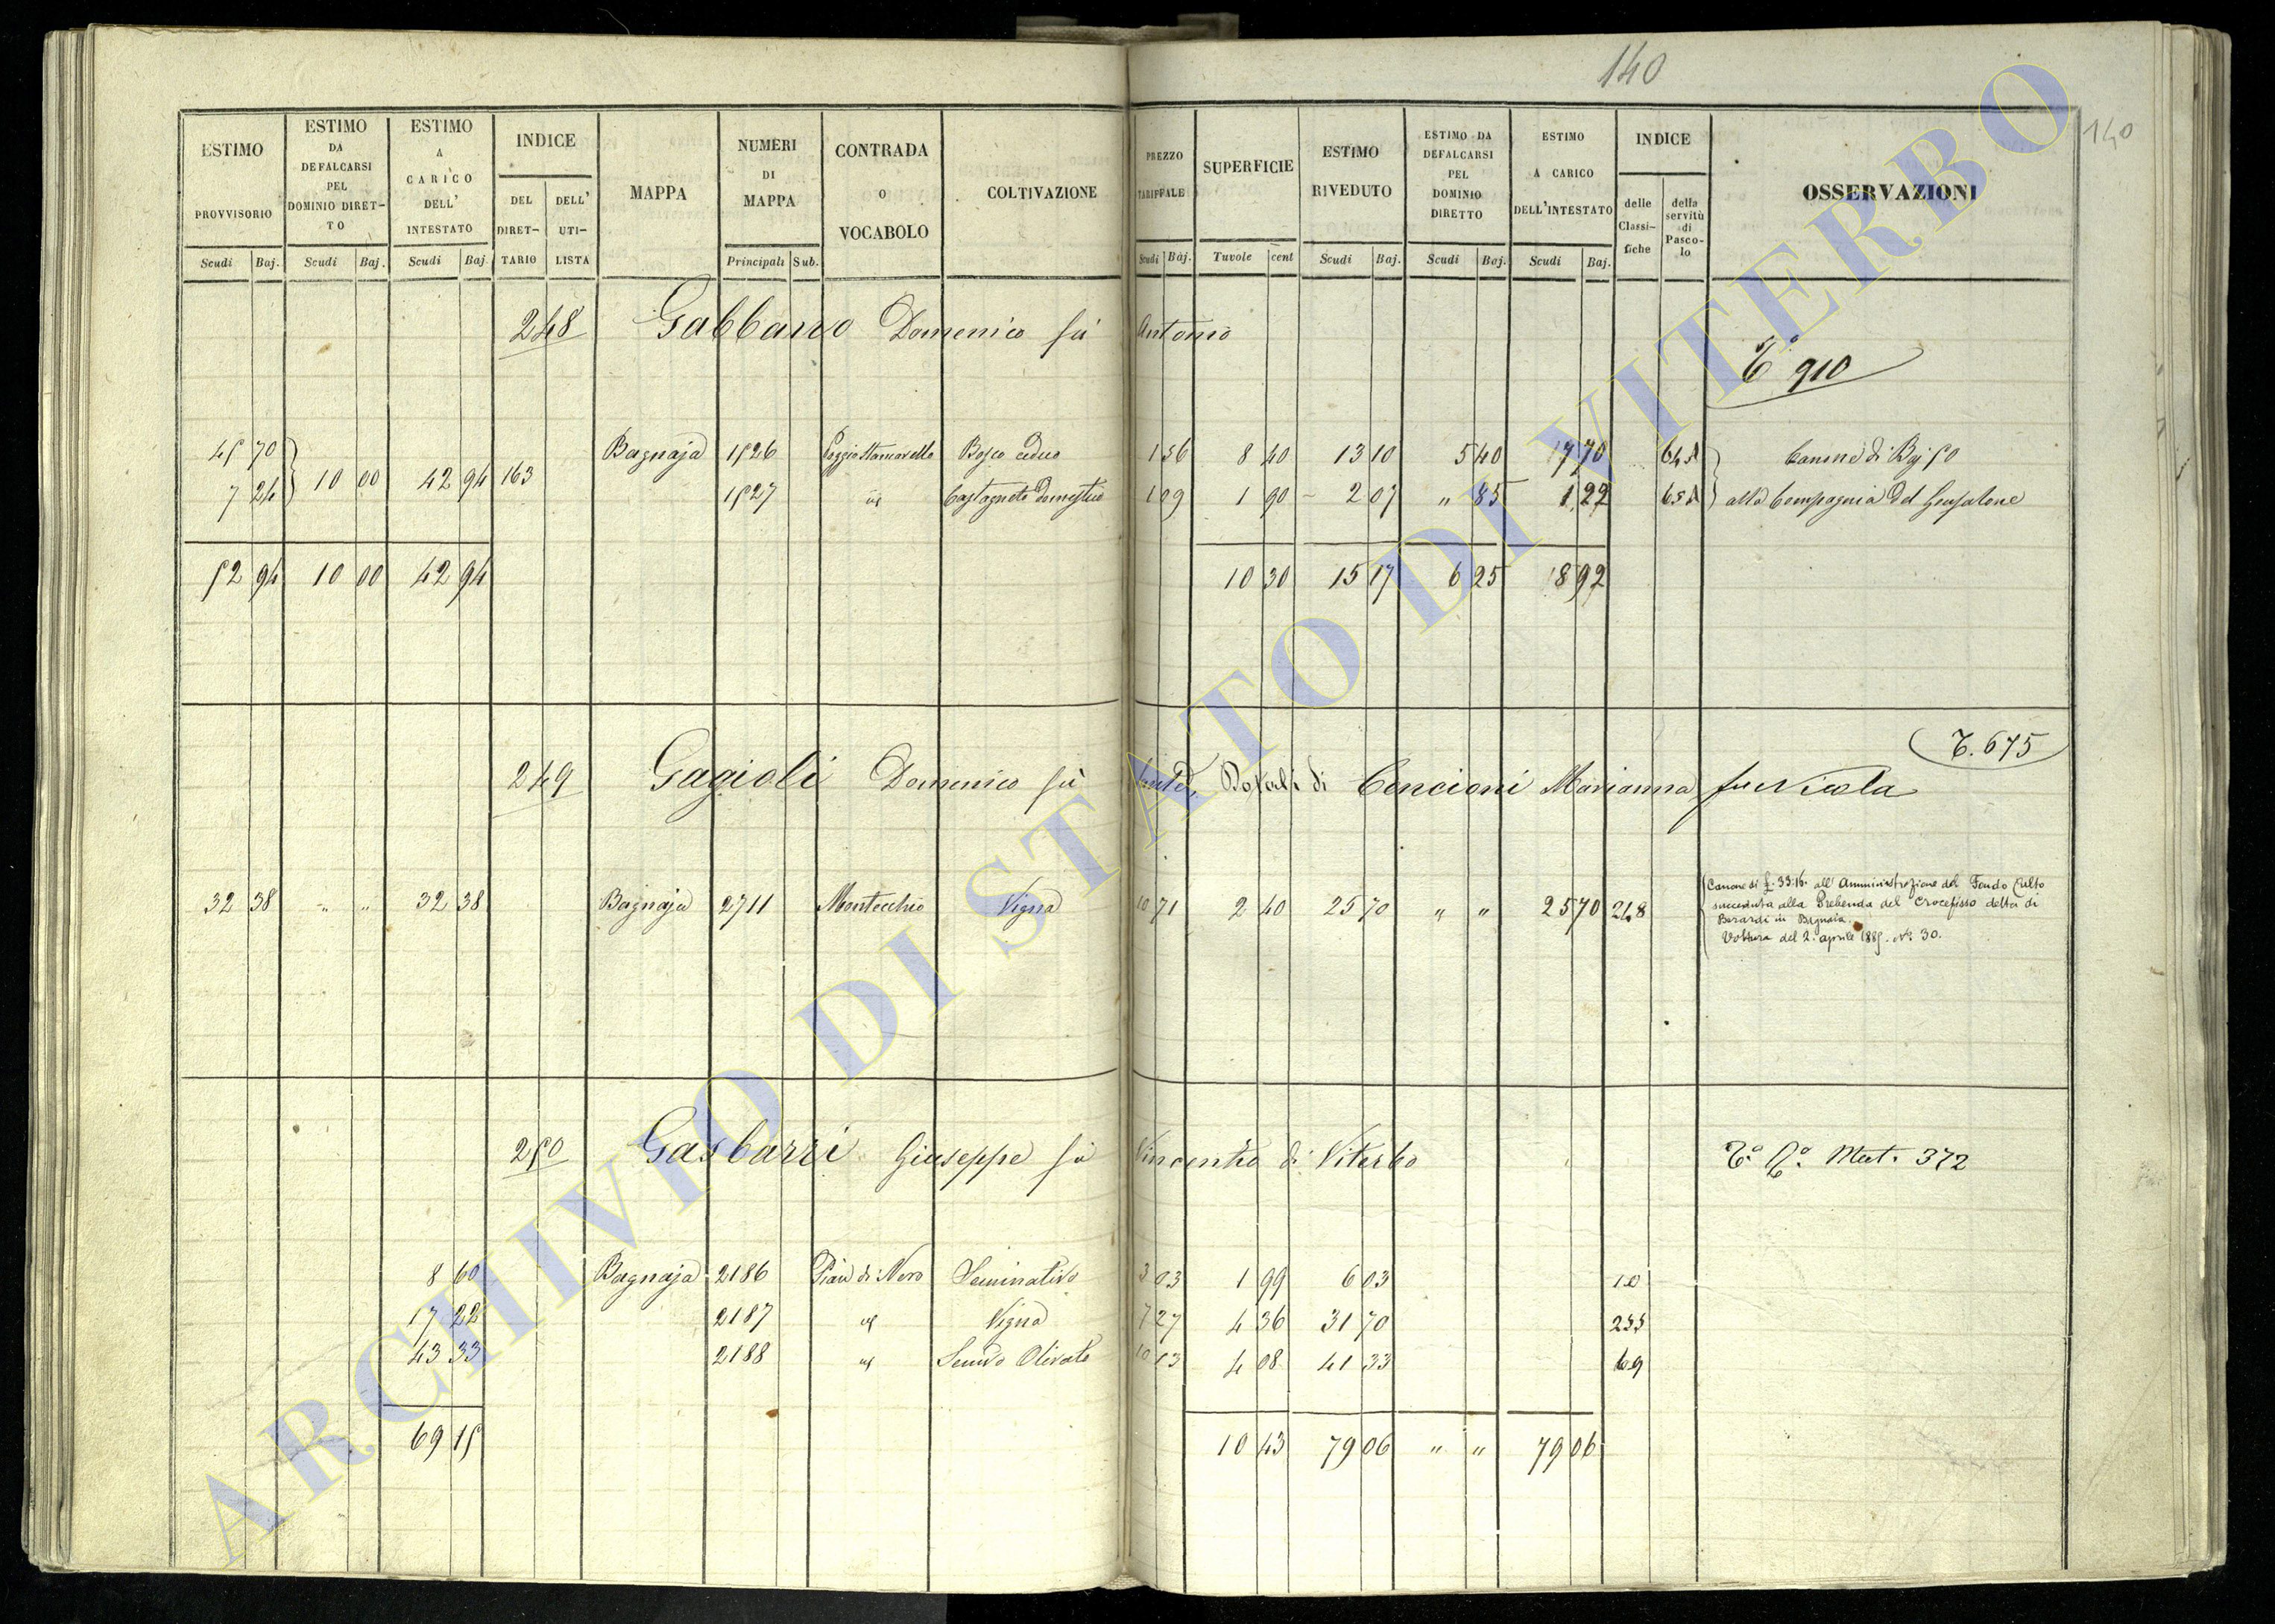 140
140
ESTIMO PROVVISORIO Scudi Baj.
ESTIMO DA DEFALCARSI PEL DOMINIO DIRETTO Scudi Baj.
ESTIMO A CARICO DELL' INTESTATO Scudi Baj.
INDICE DEL DIRETTARIO DELL' UTILISTA
MAPPA
NUMERI DI MAPPA Principali Sub.
CONTRADA O VOCABOLO
COLTIVAZIONE
PREZZO TARIFFALE Scudi Baj.
SUPERFICIE Tavole cent
ESTIMO RIVEDUTO Scudi Baj.
ESTIMO DA DEFALCARSI PEL DOMINIO DIRETTO Scudi Baj.
ESTIMO A CARICO DELL'INTESTATO Scudi Baj.
INDICE delle Classifiche della servitù di Pascolo
OSSERVAZIONI
248 Gabbano Domenico fu Antonio
910
45 70 Bagnaja 1526 Bosco ceduo 1 56 8 40 13 10 5 40 7 70 Canone di Baj 50
7 24 10 00 42 94 163 1527 Castagneto domestico 1 09 1 90 2 07 " 85 1 22 alla Compagnia del Gonfalone
52 94 10 00 42 94 10 30 15 17 6 25 8 92
T. 675
249 Gagioli Domenico fu Dotali di Cencioni Marianna fu Nicola
32 38 " " 32 38 Bagnaja 2711 Montecchio Vigna 10 71 2 40 25 70 " " 25 70 248
Canone di £. 33:16. all'Amministrazione del Fondo Culto
succeduta alla Prebenda del Crocefisso detta di
Berardi in Bagnaia.
Voltura del 2. aprile 1885. N.° 30.
250 Gasbarri Giuseppe fu Vincenzo di Viterbo Mat. 372
8 60 Bagnaja 2186 Pian di Nero Seminativo 3 03 1 99 6 03 10
17 22 2187 Vigna 7 27 4 36 31 70 255
43 33 2188 Semvo Olivato 10 13 4 08 41 33 69
69 15 10 43 79 06 " " 79 06
ARCHIVIO DI STATO DI VITERBO